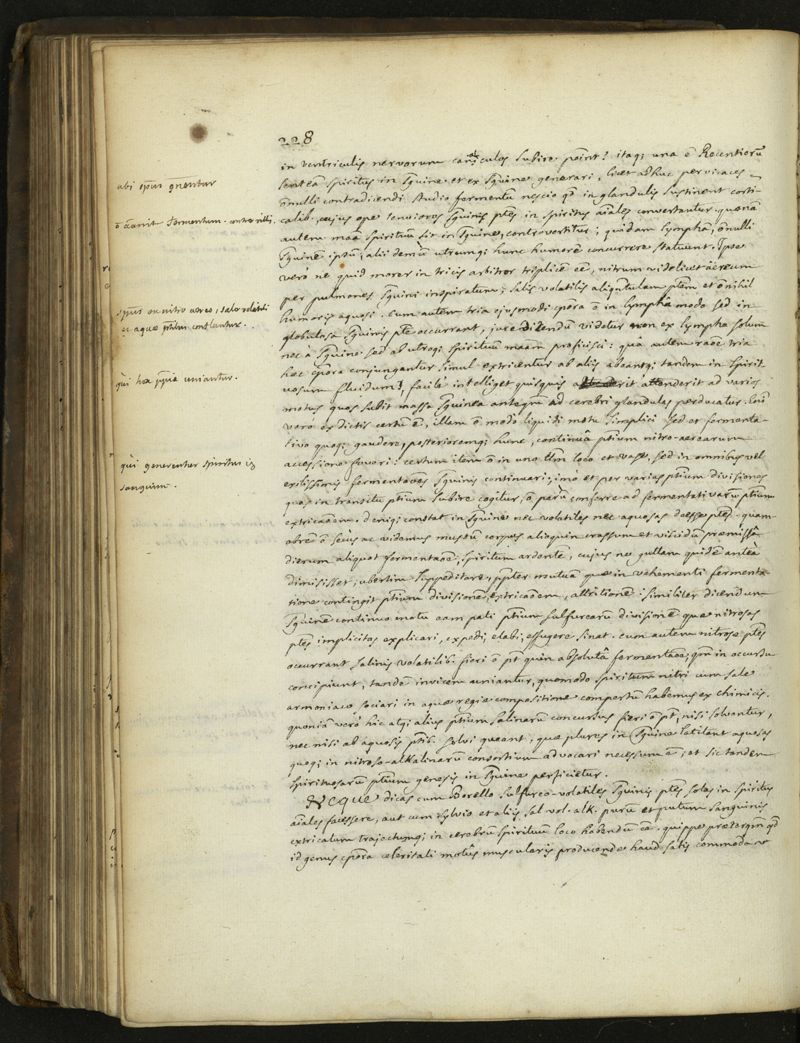 228
in ventriculis nervorum canaliculos subire possint? itaq; una ē Recentiorū
sentēa spiritus in sguine et ex sguine generari, licet adhuc pervicaces
ōnulli contradicendi studio fermentū nescio qd in glandulis sustinent corti-
calib. cujus ope tenuiores sguinis ptes in spiritus aīales convertantur. quoniā
autem maā spirituum sit in sguine, controvertitur; quidam lymphā, ōnulli
sguinē ipsū, alii demū utrumq; hunc humorē concurrere statuunt. Ipse
verò ne quid morer in tricis arbitror triplicē eē, nitrum videlicet aëreum
per pulmones sguini inspiratum; salis volatilis aliquatulam ptem et ōnihil
humoris aquosi. cum autem tria ejusmodi cpora ō in lymphâ modo sed in
globulosa sguinis pte occurrant, jure dicendū videtur non ex lympha solum
nec à sguine sed ab utroq; spirituum maam proficisci: quâ autem raōe tria
hæc cpora conjungantur simul extricentur ab aliis abeantq; tandem in spirit
uosum fluidum, facile intelliget quisquis attenderit ad varios
motus quos subit massa sguinea anteqm ad cerebri glandulas perducatur. Enī
vero ex dictis certū ē, illam ō modò liquidi motu simplici sed et fermenta-
tivo quoq; gaudere, posterioremq; hunc, continuâ ptium nitro-aerearum
accessione foveri: certum item ō in uno tm loco et vase, sed in omnibus vel
exilissimis fermentaōes sguinis continuari; imo et per varias ptium divisiones
quas in transitu ptium subire cogitur, ō parū conferre ad fermentativarum ptium
extricaōem. deniq; constat in sguine nec volatiles nec aquosas deesse ptes. quam-
obrē ō secus ac videmus mustū corpus alioquin crassum et viscidū præmissâ
dierum aliquot fermentaōe, spiritum ardentē, cujus ne guttam quidē antea
dimisisset, ubertim suppeditare, ppter mutuā quæ in vehementi fermenta-
tione contingit ptium divisionē, extricaōem, attritionē: similiter dicendum
sguinē continuo motu eam pati ptium sulfurearū divisionē quæ nitrosas
ptes implicitas explicari, expedi, elabi, effugere sinat. cum autem nitrosæ ptes
occurrant salinis volatilib. fieri ō pt quin absolutâ fermentaōe; qm in occursu
concipiunt, tandē invicem uniantur, quomodo spiritum nitri cum sale
armoniaco sociari in aquæ regiæ compositione compertū habemus ex chimicis.
quoniā verò hic atq; alius ptium salinarū concursus fieri ō pt, nisi solvantur,
nec nisi ab aquosis ptib. solvi queant, quæ plures in sguine latitant aquosas
quoq; in nitroso-alkalinarū consortium advocari necessum ē; et sic tandem
spirituosarū ptium genesis in sguine perficietur.
Neque dicas cum Borello sulfureo-volatiles sguinis ptes solas in spiritus
aīales facessere, aut cum sylvio et aliis, sal vol. alk. purū et putum sanguinis
extricatum trajectumq; in cerebrū spirituum loco habendū eē. quippe præterqm qd
id genus cpora celeritati motûs muscularis producendæ haud satis commoda v
ubi spūs gnentur
spūs ex nitro aereo, sale volatili
ac aquæ ptium constantur.
qui hæc ppria uniantur.
qui generentur spiritus in
sanguine.